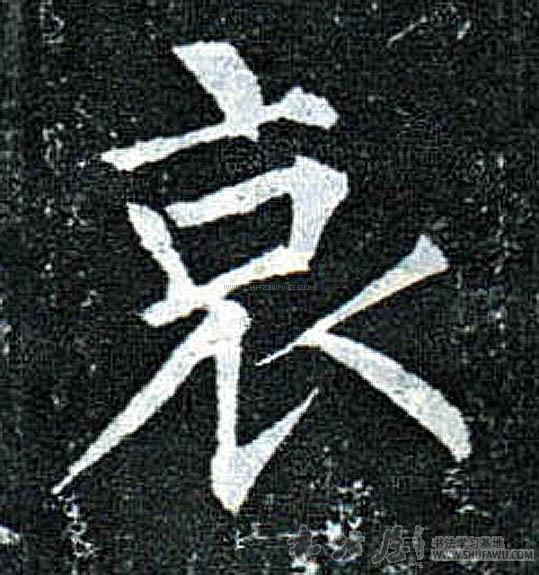 哀
WWW.CHAZIWANG.COM
书法学习基地
WWW.SHUFAWU.COM